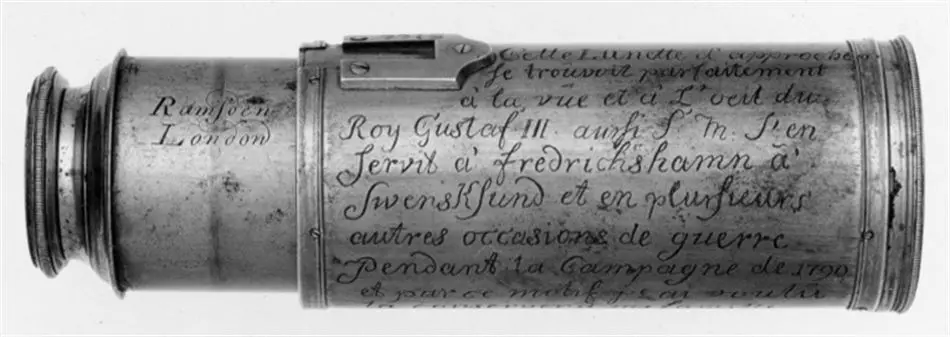 Ramsden
London
Cette Lunette d'approche
se trouvoit parfaitement
à la vüe et à L'oeil du
Roy Gustaf III. aussi S. M. S'en
servit à fredrichshamn à
SwensKsund et en plusieurs
autres occasions de guerre
Pendant la Campagne de 1790
et par ce motif j'ai voulu